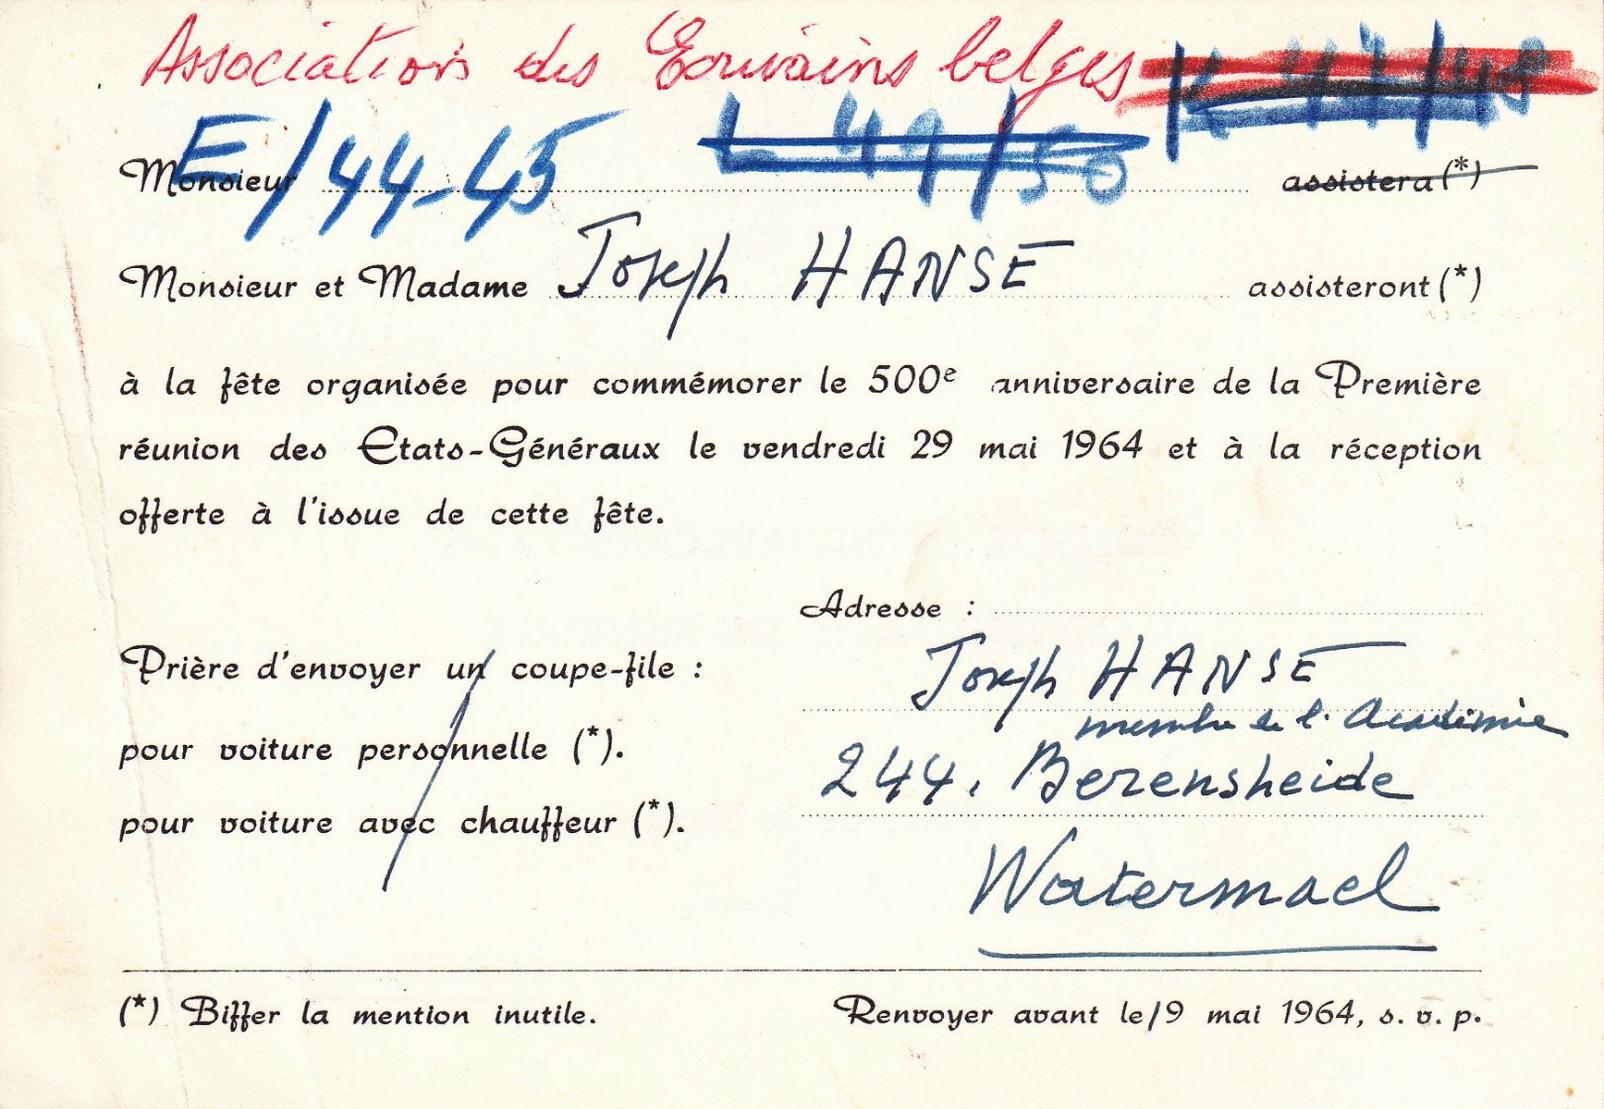 Association des Ecrivains belges K 47/48
E/44-45 L 49/50
Monsieur assistera (*)
Monsieur et Madame Joseph HANSE assisteront (*)
à la fête organisée pour commémorer le 500e anniversaire de la Première
réunion des Etats-Généraux le vendredi 29 mai 1964 et à la réception
offerte à l'issue de cette fête.
Adresse :
Joseph HANSE
membre de l'Académie
244, Berensheide
Watermael
Prière d'envoyer un coupe-file :
pour voiture personnelle (*).
pour voiture avec chauffeur (*).
(*) Biffer la mention inutile.
Renvoyer avant le 19 mai 1964, s. v. p.